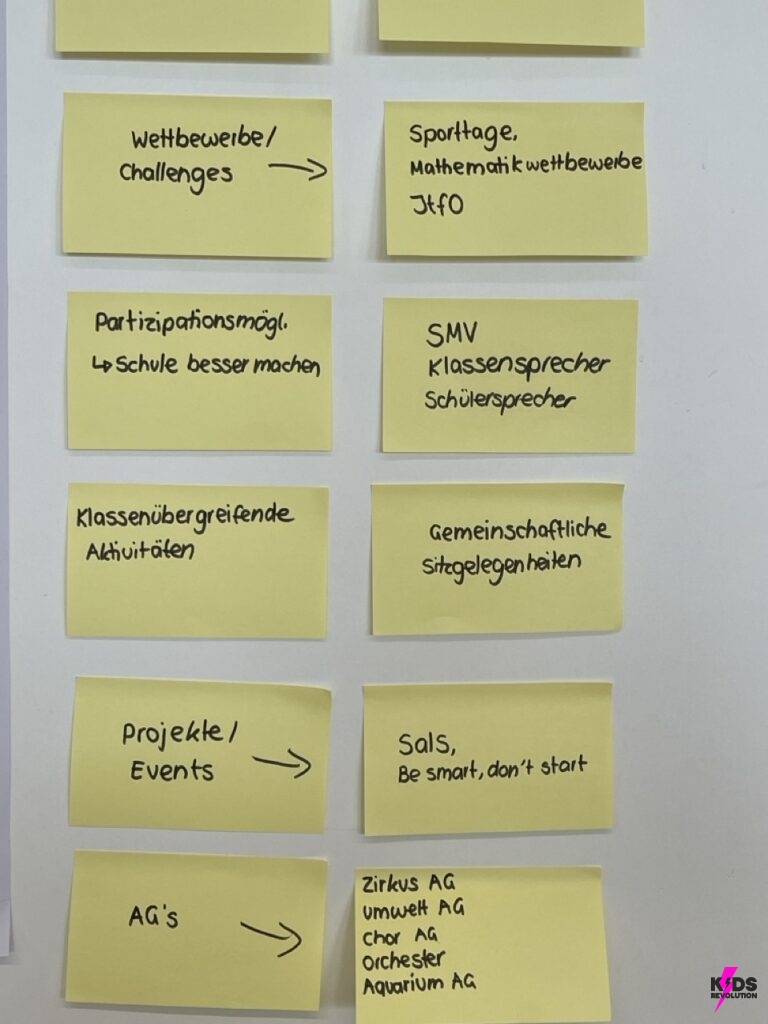 Wettbewerbe/
Challenges →
Sporttage,
Mathematikwettbewerbe
JtfO
Partizipationsmögl.
↳ Schule besser machen
SMV
Klassensprecher
Schülersprecher
Klassenübergreifende
Aktivitäten
Gemeinschaftliche
Sitzgelegenheiten
Projekte/
Events →
Sals,
Be smart, don't start
AG's →
Zirkus AG
Umwelt AG
Chor AG
Orchester
Aquarium AG
KIDS
REVOLUTION